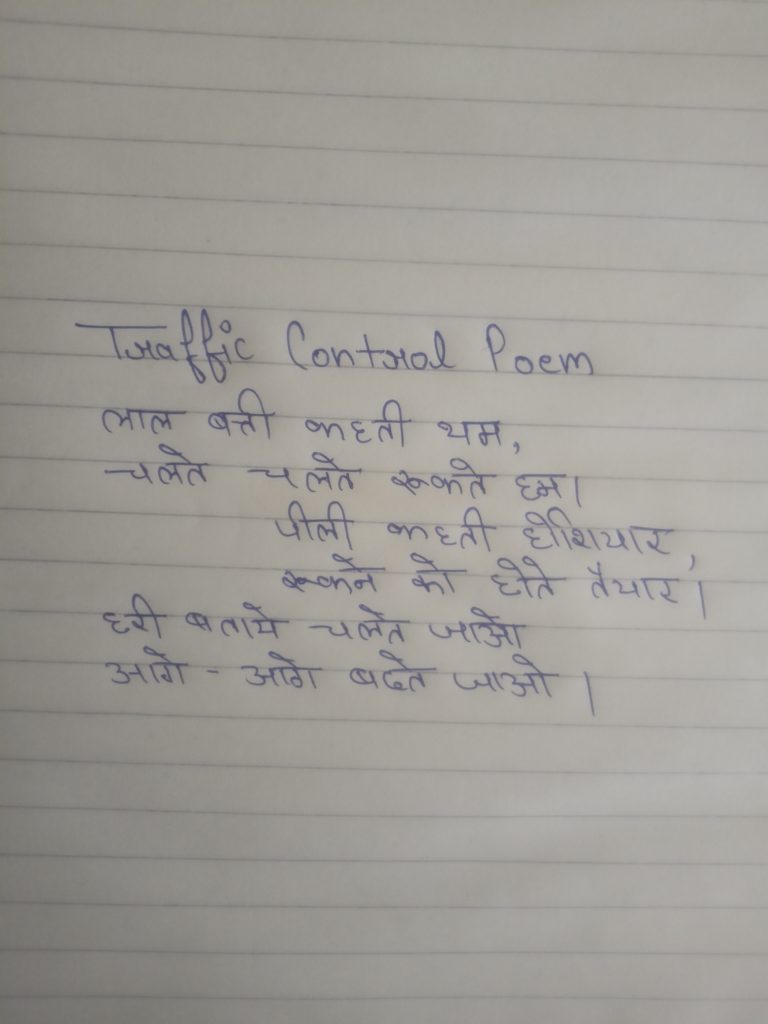 Traffic Control Poem
लाल बत्ती कहती थम,
चलते चलते रूकते हम।
पीली कहती होशियार,
रूकने को होते तैयार।
हरी बताये चलते जाओ
आगे - आगे बढते जाओ।